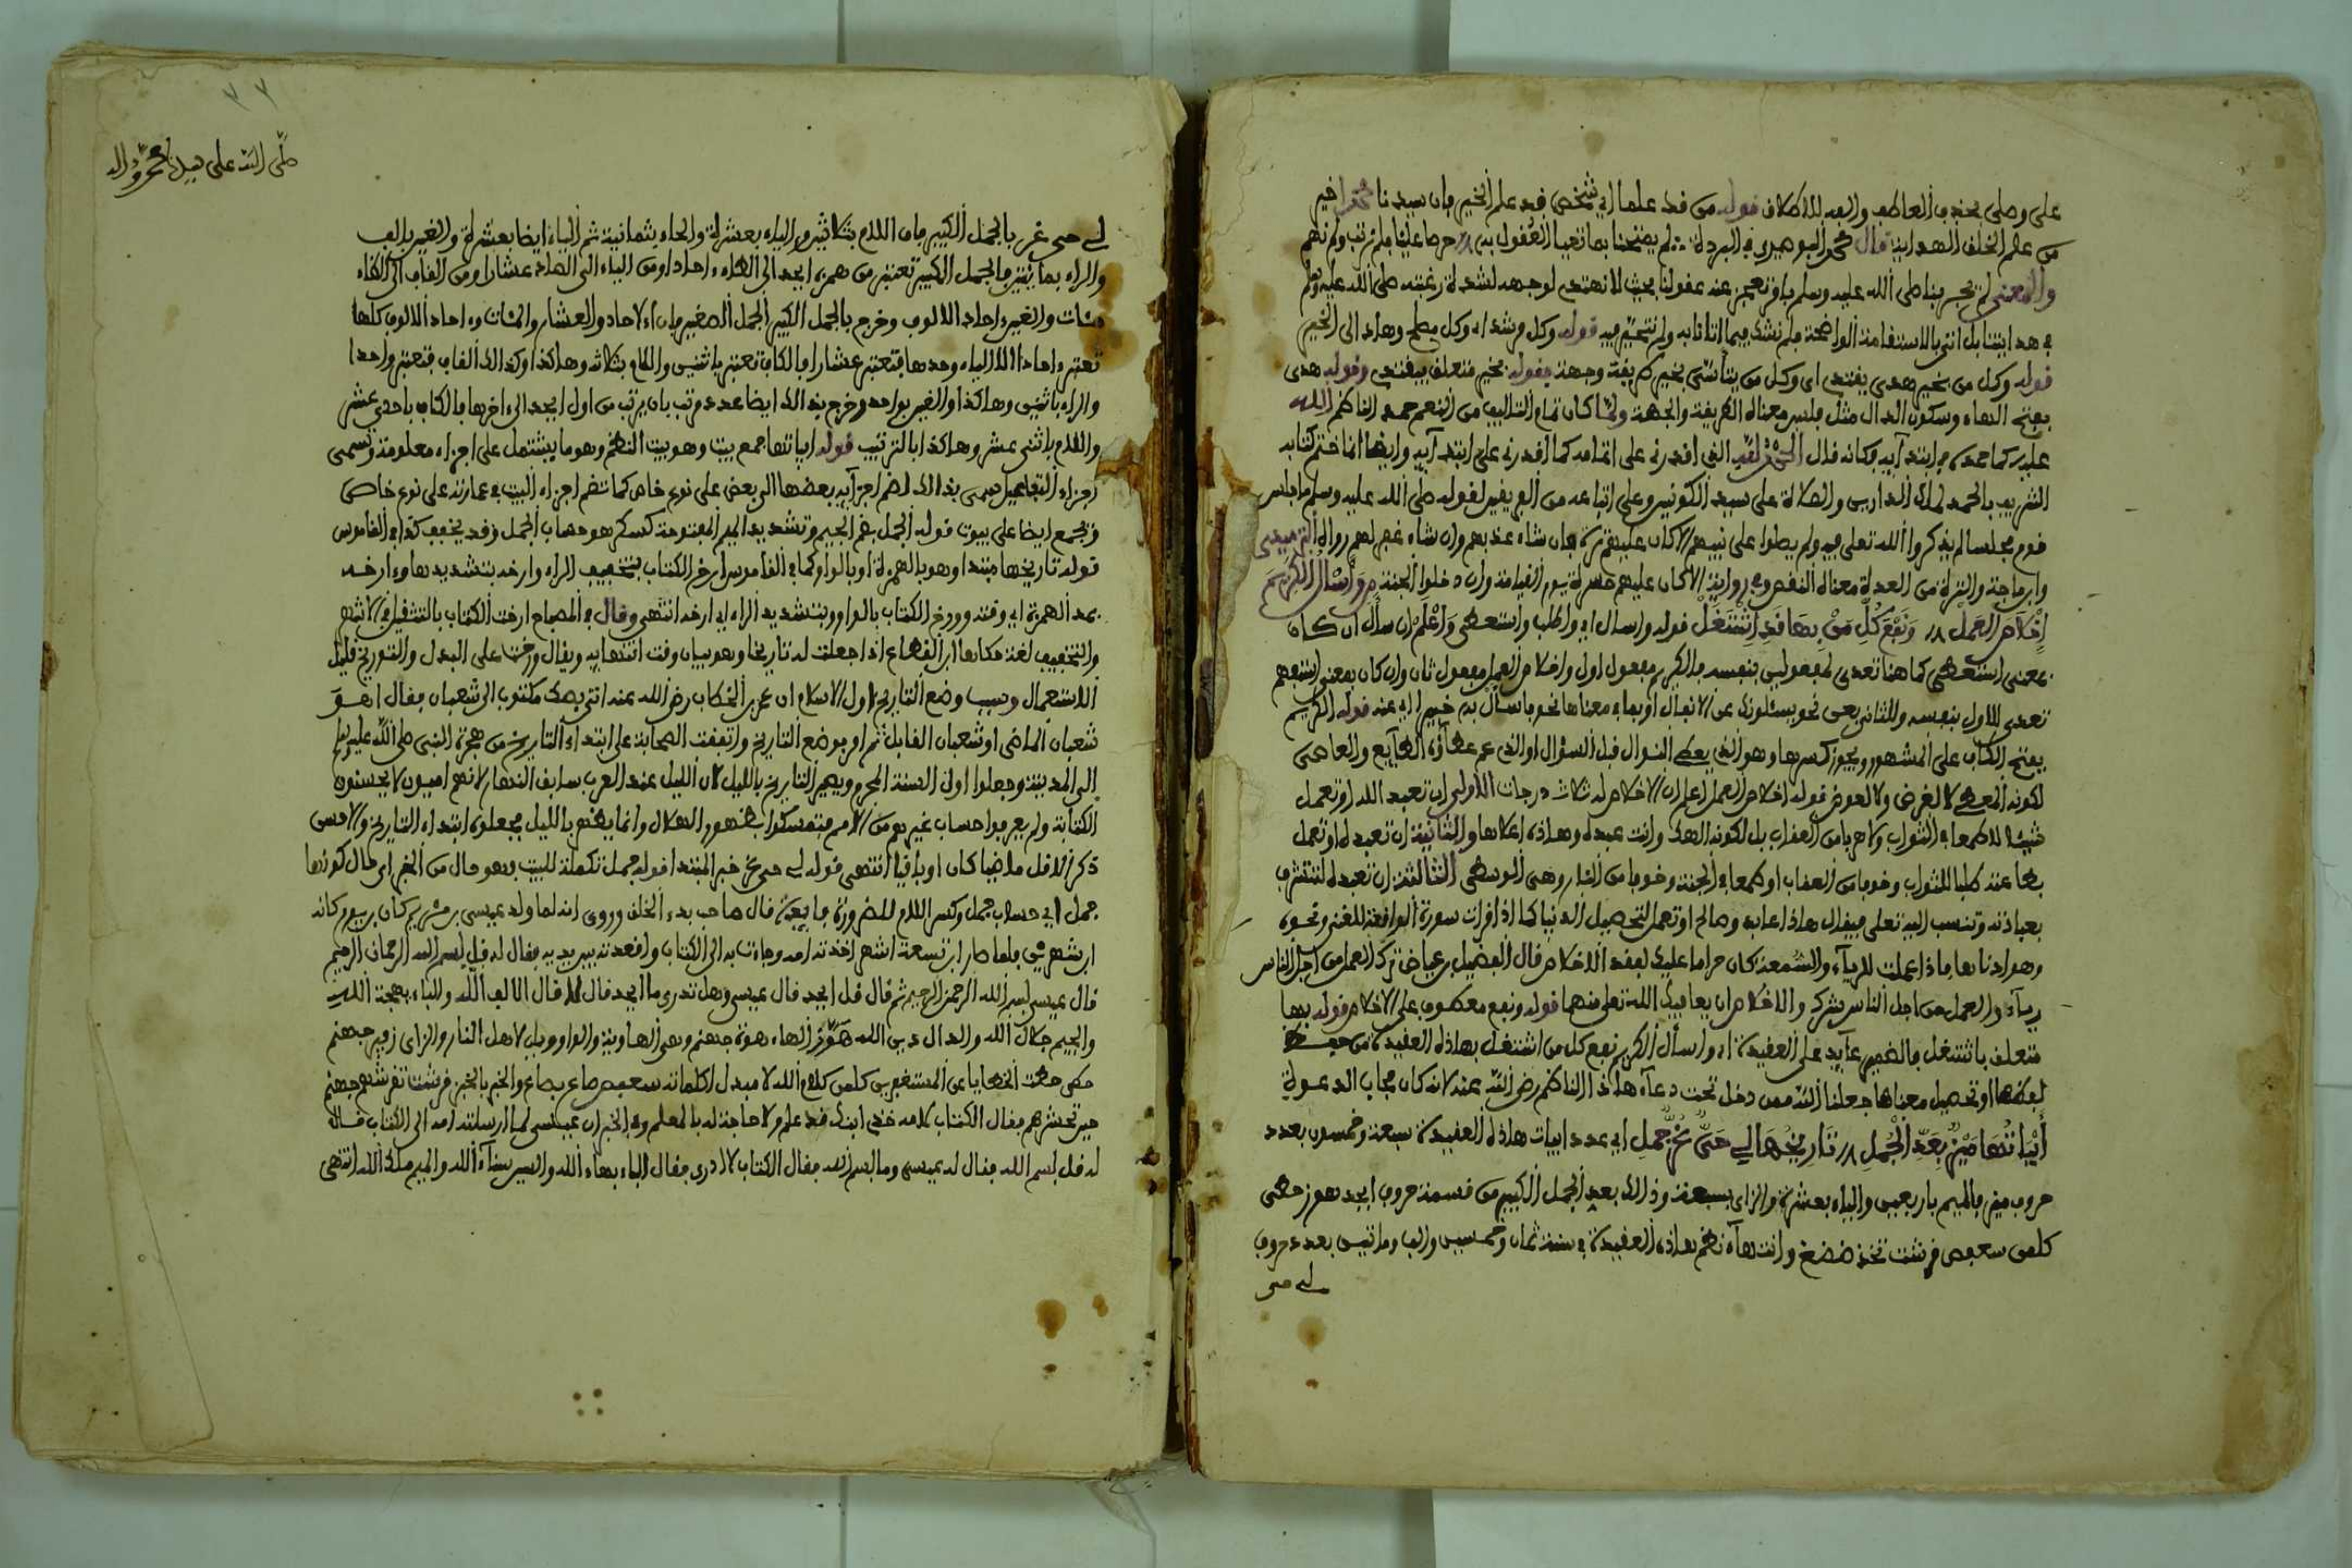 على وصلى بحذف العاطف والعد للاطلاق قوله من قد علما اي شخص قد علم الخير فان سيدنا محمدا خير
من علم الخلق الهداية قال محمد البوصيري في البردة لم يمتحنا بما تعيا العقول به حرصا علينا فلم نرتب ولم نهم
والمعنى لم يختبرنا صلى الله عليه وسلم بامر تعجز عنه عقولنا بحيث لا نهتدي لوجهه لشدة رغبته صلى الله عليه وسلم
في هدايتنا بل اتى بالاستقامة الواضحة فلم نشك فيما اتانا به ولم نتحير فيه قوله وكل مرشد اي وكل معلم وهاد الى الخير
قوله وكل من بخير هدي يقتدي اي وكل من يتأسى بخير طريقة وجهة فقوله بخير متعلق بيقتدي وقوله هدى
بفتح الهاء وسكون الدال مثل فلس معناه الطريقة والجهة ولما كان تمام التاليف من النعم حمد الناظم الله
عليه كما حمده في ابتدايه وكانه قال الحمد لله الذي اقدرني على اتمامه كما اقدرني على ابتدايه وايضا انما ختم كتابه
الشريف بالحمد لمالك الدارين والصلاة على سيد الكونين وعلى اتباعه من الفريقين لقوله صلى الله عليه وسلم ما جلس
قوم مجلسا لم يذكروا الله تعلى فيه ولم يصلوا على نبيهم الا كان عليهم ترة فان شاء عذبهم وان شاء غفر لهم رواه الترميدي
وابن ماجة والترة من العدة معناه النقص وفي رواية الا كان عليهم حسرة يوم القيامة وان دخلوا الجنة وأسأل الكريم
إخلاص العمل ونفع كل من بها قد اشتغل قوله واسال اي واطلب واستعطي واعلم ان سأل ان كان
بمعنى استعطى كما هنا تعدى لمفعولين بنفسه فالكريم مفعول اول واخلاص العمل مفعول ثان وان كان بمعنى استفهم
تعدى للاول بنفسه وللثاني بعن نحو يسئلونك عن الانفال او بما في معناها نحو فاسأل به خبيرا اي عنه قوله الكريم
بفتح الكاف على المشهور ويجوز كسرها وهو الذي يعطي النوال قبل السؤال او الذي عم عطاؤه الطايع والعاصي
لكونه المعطي لا لغرض ولا لعوض قوله اخلاص العمل اعلم ان الاخلاص له ثلاث درجات الاولى ان تعبد الله او تعمل
شيئا لا طمعا في الثواب ولا هربا من العقاب بل لكونه الهك وانت عبده وهاذه اعلاها والثانية ان تعبده او تعمل
بطاعته طلبا للثواب وخوفا من العقاب او طمعا في الجنة وخوفا من النار وهي الوسطى الثالثة ان تعبده لتتشرف
بعبادته وتنسب اليه تعلى فيقال هاذا عابد وصالح او تعمل لتحصيل الدنيا كما اذا قرات سورة الواقعة للغنى ونحوه
وهو ادناها فاذا عملت للريآء والسمعة كان حراما عليك لفقد الاخلاص قال الفضيل بن عياض ترك العمل من اجل الناس
ريآء والعمل من اجل الناس شرك والاخلاص ان يعافيك الله تعلى منهما قوله ونفع معطوف على الاخلاص قوله بها
متعلق باشتغل فالضمير عآيد على العقيدة اي واسأل الكريم نفع كل من اشتغل بهاذه العقيدة من حيث
لفظها او تحصيل معناها جعلنا الله ممن دخل تحت دعآء هاذا الناظم رضي الله عنه لانه كان مجاب الدعوة
أبياتها ميز بعد الجمل تاريخها لي حي غر جمل اي عدد ابيات هاذه العقيدة سبعة وخمسون بعدد
حروف ميز فالميم باربعين والياء بعشرة والزاي بسبعة وذالك بعد الجمل الكبير من قسمة حروف ابجد هوز حطي
كلمن سعفص قرشت ثخذ ضظغ وانتهآء نظم هاذه العقيدة في سنة ثمان وخمسين والف ومائتين بعدد حروف
لي حي
٣٧
صلى الله على سيدنا محمد واله
لي حي غر بالجمل الكبير فان اللام بثلاثين والياء بعشرة والحاء بثمانية ثم الياء ايضا بعشرة والغين بالف
والراء بمائتين فالجمل الكبير تعتبر من همزة ابجد الى الطاء احادا ومن الياء الى الصاد عشارا ومن القاف الى الظاء
مئات والغين احاد الالوف وخرج بالجمل الكبير الجمل الصغير فان الاحاد والعشار والمئات واحاد الالوف كلها
تعتبر احادا الا الياء وحدها فتعتبر عشارا فالكاف تعتبر باثنين واللام بثلاثة وهاكذا وكذالك القاف فتعتبر واحدا
والراء باثنين وهاكذا والغين بواحد وخرج بذالك ايضا عدد مرتب بان يرتب من اول ابجد الى اخرها فالكاف باحدى عشر
واللام باثني عشر وهاكذا بالترتيب قوله ابياتها جمع بيت وهو بيت النظم وهو ما يشتمل على اجزاء معلومة وتسمى
اجزاء التفعيل سمي بذالك لضم اجزآيه بعضها الى بعض على نوع خاص كما تضم اجزاء البيت في عمارته على نوع خاص
وتجمع ايضا على بيوت قوله الجمل بضم الجيم وتشديد الميم المفتوحة كسكر هو حساب الجمل وقد يخفف كذا في القاموس
قوله تاريخها مبتدا وهو بالهمزة او بالواو كما في القاموس ارخ الكتاب بتخفيف الراء وارخه بتشديدها وآرخه
بمد الهمزة اي وقته وورخ الكتاب بالواو وبتشديد الراء اي ارخه انتهى وقال في المصباح ارخت الكتاب بالتثقيل في الاشهر
والتخفيف لغة حكاها ابن القطاع اذا جعلت له تاريخا وهو بيان وقت انتهايه ويقال ورخت على البدل والتوريخ قليل
الاستعمال وسبب وضع التاريخ اول الاسلام ان عمر بن الخطاب رضي الله عنه اتي بصك مكتوب الى شعبان فقال اهو
شعبان الماضي او شعبان القابل ثم امر بوضع التاريخ واتفقت الصحابة على ابتداء التاريخ من هجرة النبي صلى الله عليه وسلم
الى المدينة وجعلوا اول السنة المحرم ويعتبر التاريخ بالليل لان الليل عند العرب سابق النهار لانهم اميون لا يحسنون
الكتابة ولم يعرفوا حساب غيرهم من الامم فتمسكوا بظهور الهلال وانما يظهر بالليل فجعلوه ابتداء التاريخ والاحسن
ذكر الاقل ماضيا كان او باقيا انتهى قوله لي حي غر خبر المبتدا قوله جمل تكملة للبيت وهو حال من الخبر اي حال كونها
جمل اي حساب جمل وكسر اللام للضرورة قال صاحب بدء الخلق وروي انه لما ولد عيسى بن مريم كان ابن يوم كانه
ابن شهرين فلما صار ابن تسعة اشهر اخذته امه وجاءت به الى الكتاب واقعدته بين يديه فقال له قل بسم الله الرحمان الرحيم
قال عيسى بسم الله الرحمن الرحيم ثم قال قل ابجد قال عيسى وهل تدري ما ابجد قال لا قال الالف الله والباء بهجة الله
والجيم جلال الله والدال دين الله هوز الهاء هوة جهنم وهي الهاوية والواو ويل لاهل النار والزاي زفير جهنم
حطي حطت الخطايا عن المستغفرين كلمن كلام الله لا مبدل لكلماته سعفص صاع بصاع والخبز بالخبز قرشت تقرشهم جهنم
حين تحشرهم فقال الكتاب لامه خذي ابنك فقد علم ولا حاجة له بالمعلم وفي الخبر ان عيسى لما ارسلته امه الى الكتاب قال
له قل بسم الله فقال له عيسى وما بسم الله فقال الكتاب لا ادري فقال الباء بهاء الله والسين سنآء الله والميم ملك الله انتهى